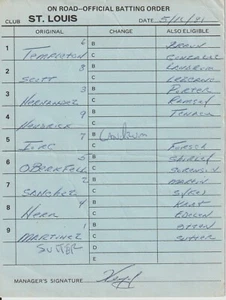 ON ROAD–OFFICIAL BATTING ORDER
CLUB ST. LOUIS DATE 5/16/81
ORIGINAL CHANGE ALSO ELIGIBLE
6 B BRAUN
1 TEMPLETON C GONZALEZ
8 B LANDRUM
2 SCOTT C
3 B PORTER
3 HERNANDEZ C RAMSEY
9 B TENACE
4 HENDRICK C
7 B Landrum
5 IORG C FORSCH
5 B SHIRLEY
6 OBERKFELL C SORENSEN
2 B MARTIN
7 SANCHEZ C SYKES
4 B KAAT
8 HERR C EDELEN
1 B OTTEN
9 MARTINEZ C SUTTER
SUTTER D
E
MANAGER'S SIGNATURE